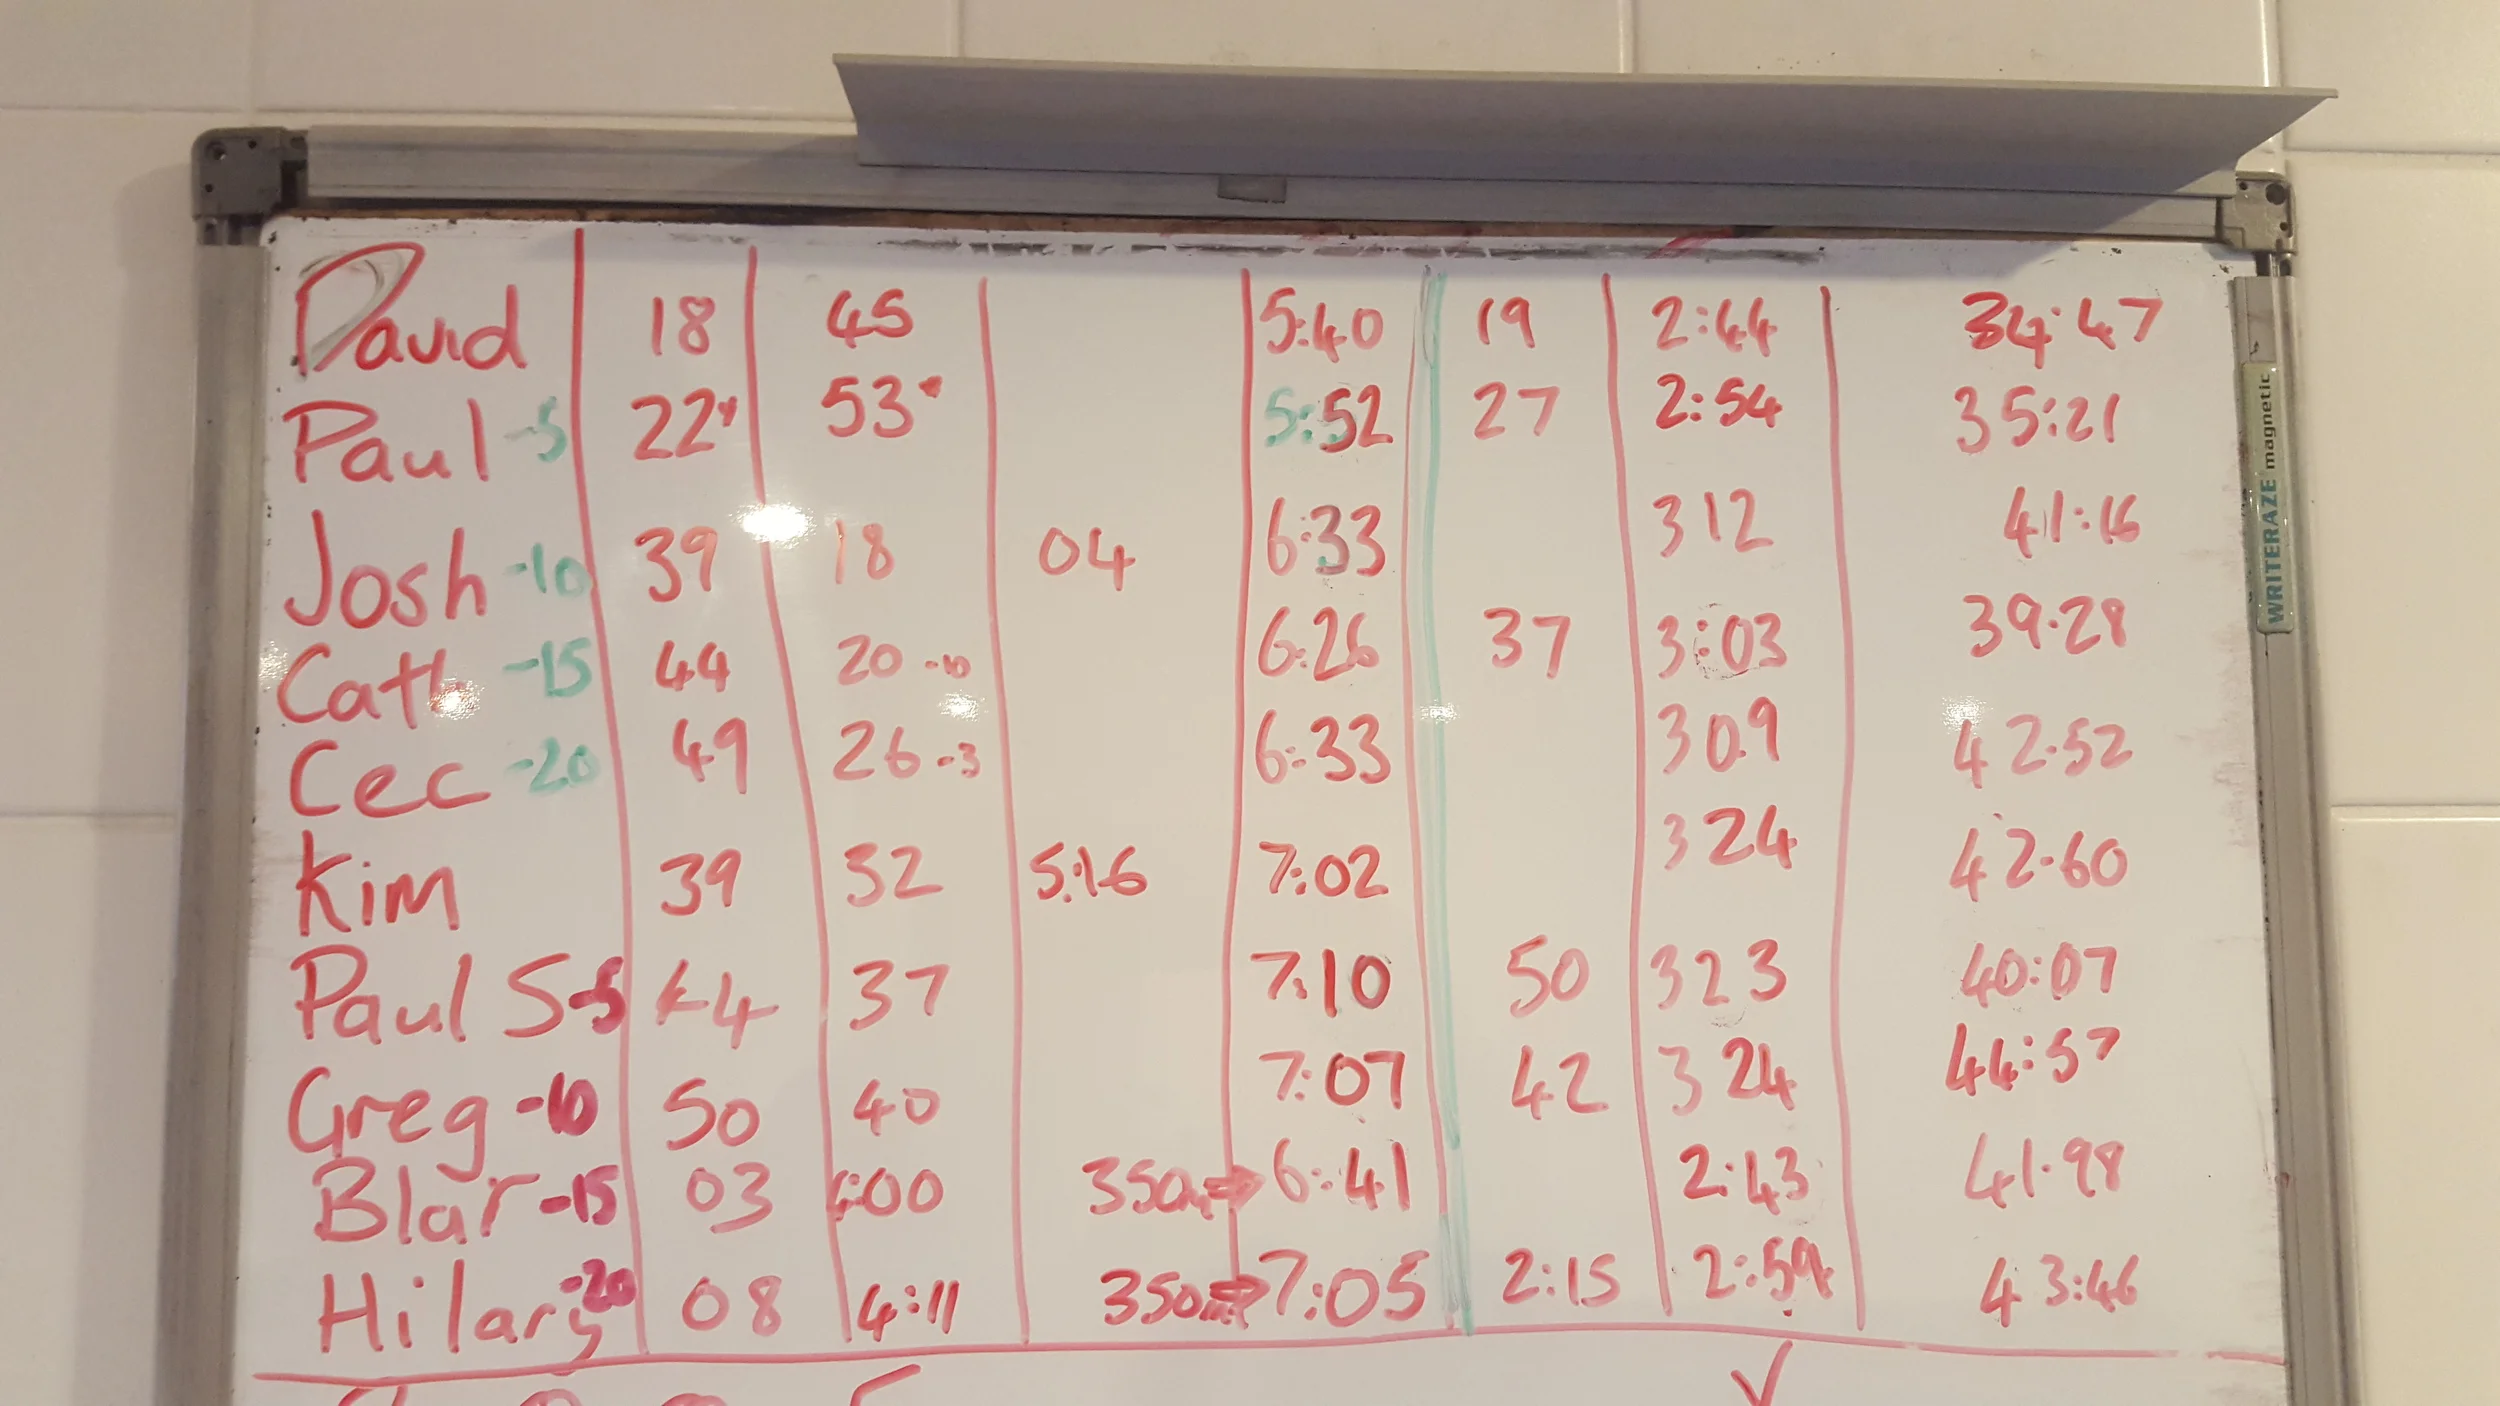 David 18 45 5:40 19 2:44 34:47
Paul -5 22 53 5:52 27 2:54 35:21
Josh -10 39 18 04 6:33 312 41:16
Cath -15 44 20 -10 6:26 37 3:03 39.28
Cec -20 49 26 -3 6:33 309 42.52
Kim 39 32 5:16 7:02 324 42.60
Paul S -5 44 37 7:10 50 323 40:07
Greg -10 50 40 7:07 42 324 44:57
Blar -15 03 4:00 350m 6:41 2:43 41.98
Hilary -20 08 4:11 350m 7:05 2:15 2:59 43:46
WRITERAZE magnetic